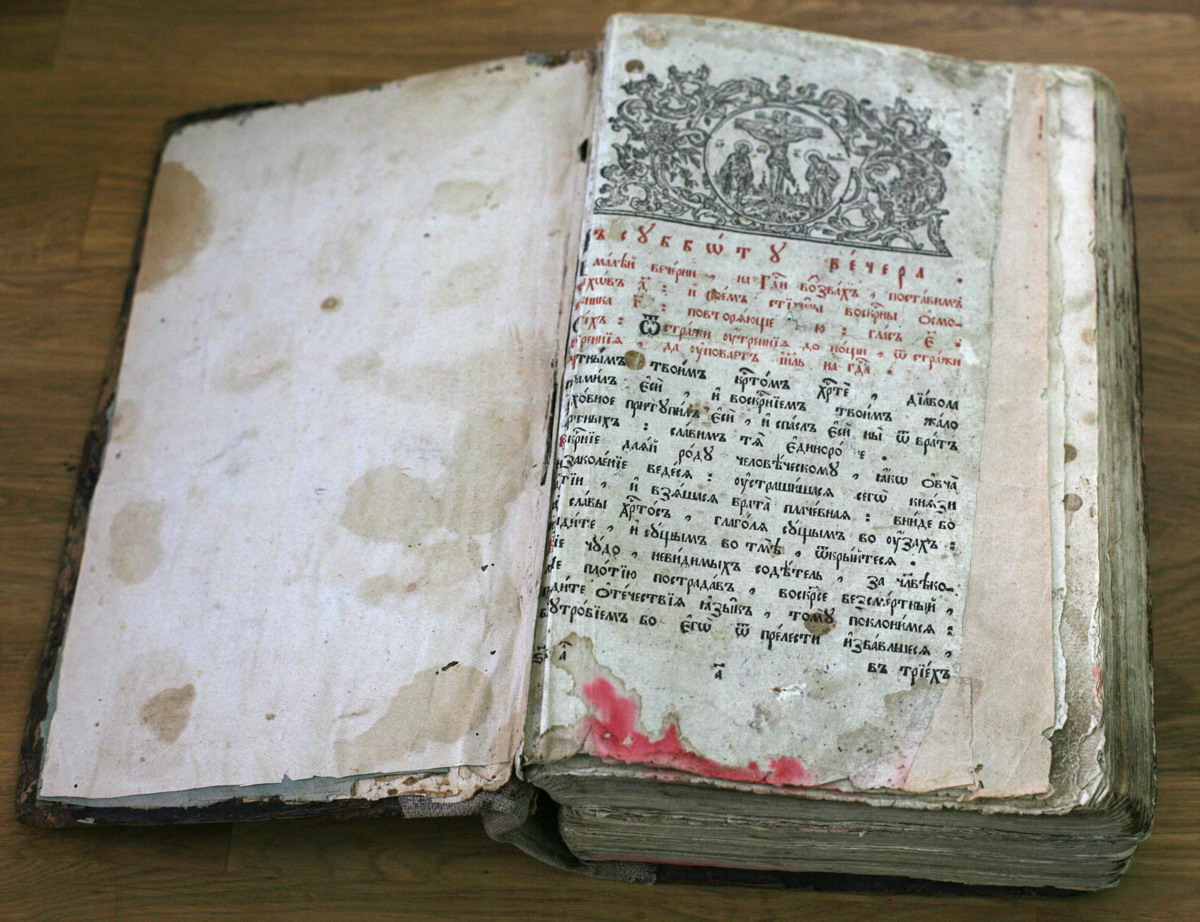 ъ сꙋббѡ́тꙋ ве́чера .
ма́лѣй вече́рни , на Гдⷭ҇и воⷥзва́хъ , поста́вимъ
хѡ́въ д҃ : и҆ пое́мъ стїхи̑ры воскрⷭ҇ны ѻ҆смо-
повторѧ́юще ю҆ : гла́съ є҃ .
ѿ стра́жи ᲂу҆́треннїѧ до но́щи , ѿ стра́жи
треннїѧ , да ᲂу҆пова́етъ і҆и҃ль на гдⷭ҇а .
тны́мъ твои́мъ крⷭ҇то́мъ хрⷭ҇тѐ , дїа́вола
є҆сѝ , и҆ воскрⷭ҇нїемъ твои́мъ жа́ло
хо́вное притꙋпи́лъ є҆сѝ , и҆ спа́слъ є҆сѝ ны̀ ѿ вра́тъ
тныхъ : сла́вимъ тѧ̀ є҆диноро е .
крⷭ҇нїе даѧ́й ро́дꙋ человѣ́ческомꙋ , ꙗ҆́кѡ ѻ҆вча̀
заколе́нїе веде́сѧ : ᲂу҆страши́шасѧ сегѡ̀ кнѧ́зи
тїи , и҆ взѧ́шасѧ врата̀ плаче́внаѧ : вни́де бо
сла́вы хрⷭ҇то́съ , глаго́лѧ сꙋ́щымъ во ᲂу҆́захъ :
ди́те , и҆ сꙋ́щымъ во тмѣ̀ , ѿкры́йтесѧ .
їе чꙋ́до , неви́димыхъ содѣ́тель , за чл҃вѣко-
е пло́тїю пострада́въ , воскрⷭ҇е безсме́ртный ,
ди́те ѻ҆те́чествїѧ ꙗ҆зы̑къ , томꙋ̀ поклони́мсѧ :
ꙋтро́бїемъ бо є҆гѡ̀ ѿ пре́лести и҆зба́вльшесѧ ,
въ трїе́хъ
а҃
а҃